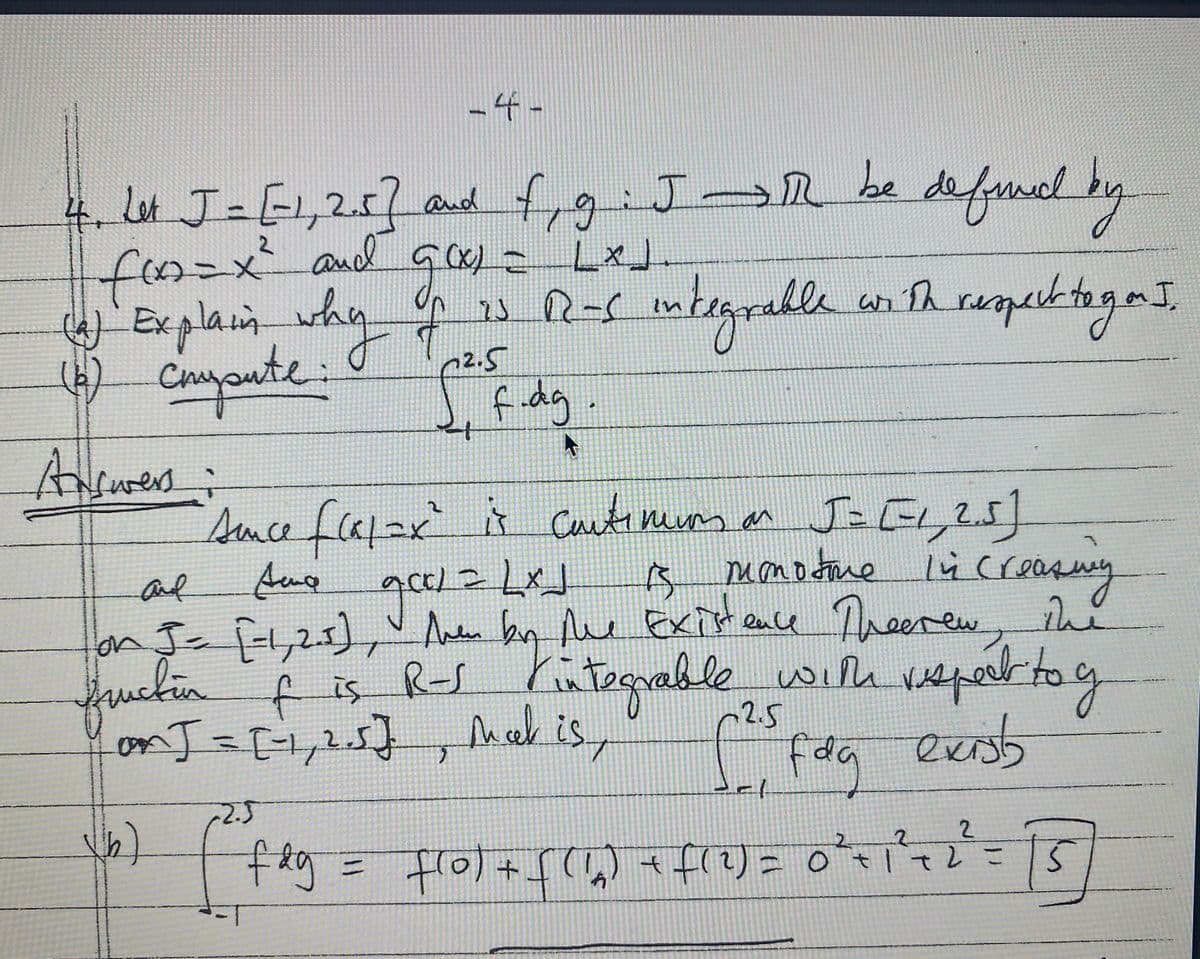 -4-
4. Let J = [-1, 2.5] and f, g : J → ℝ be defined by
f(x) = x² and g(x) = ⌊x⌋.
(a) Explain why f is R-S integrable with respect to g on J.
(b) Compute: ∫_{-1}^{2.5} f.dg.
Answers :
Since f(x) = x² is continuous on J = [-1, 2.5]
and since g(x) = ⌊x⌋ is monotone increasing
on J = [-1, 2.5], then by the Existence Theorem, the
function f is R-S integrable with respect to g
on J = [-1, 2.5], that is, ∫_{-1}^{2.5} fdg exists
(b) ∫_{-1}^{2.5} fdg = f(0) + f(1) + f(2) = 0² + 1² + 2² = 5